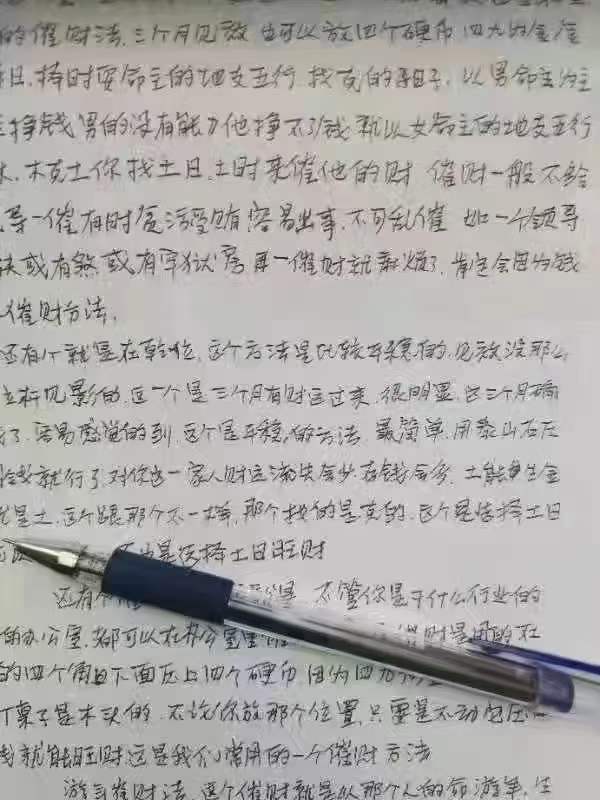 的催财法,三个月见效 也可以放四个硬币 四九为金 准
日.择时要命主的地支五行.找克的子日子.以男命主为主
挣钱 男的没有能力他挣不了钱 就以女命主的地支五行
木.木克土你找土日.土时来催他的财 催财一般不给
导一催有时食污受贿容易出事.不可乱催 如一个领导
或有煞或有牢狱 再一催财就麻烦了.肯定会因为钱
催财方法.
还有个就是在乾位.这个方法是比较平稳的.见效没那么
立杆见影的.这一个是三个月有财运过来.很明显.这三个月确
了.容易感觉的到.这个是平稳的方法 最简单.用泰山石压
钱就行了.对你这一家人财运流失会少存钱会多.土能生金
就是土.这个跟那个不一样.那个找的是克的.这个是选择土日
也是选择土日旺财
还有个 是 不管你是干什么行业的
的办公室.都可以在办公室里 催财是用的在
的四个角下面压上四个硬币 因为四九
个桌子是木头的 不论你放那个位置 只要是不动它压
钱就能旺财 这是我们常用的一个催财方法
游年催财法.这个催财就是从那个人的命游年.生